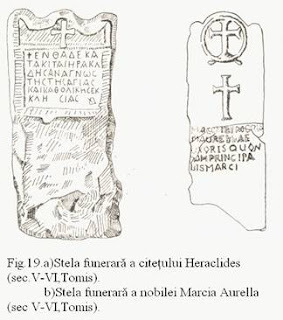 +ΕΝΘΑΔΕΚΑ
ΤΑΚΙΤΑΙΗΡΑΚΛ
ΔΗΣΑΝΑΓΝΩΣ
ΤΗΣΤΗΣΑΓΙΑΣ
ΚΑΙΚΑΘΟΛΙΚΗΣΕΚ
ΚΛΗ ΣΙΑΣ
ORISQUON
MPRINCIPA
ISMARCI
Fig.19.a)Stela funerară a citețului Heraclides
(sec.V-VI,Tomis).
b)Stela funerară a nobilei Marcia Aurella
(sec V-VI,Tomis).